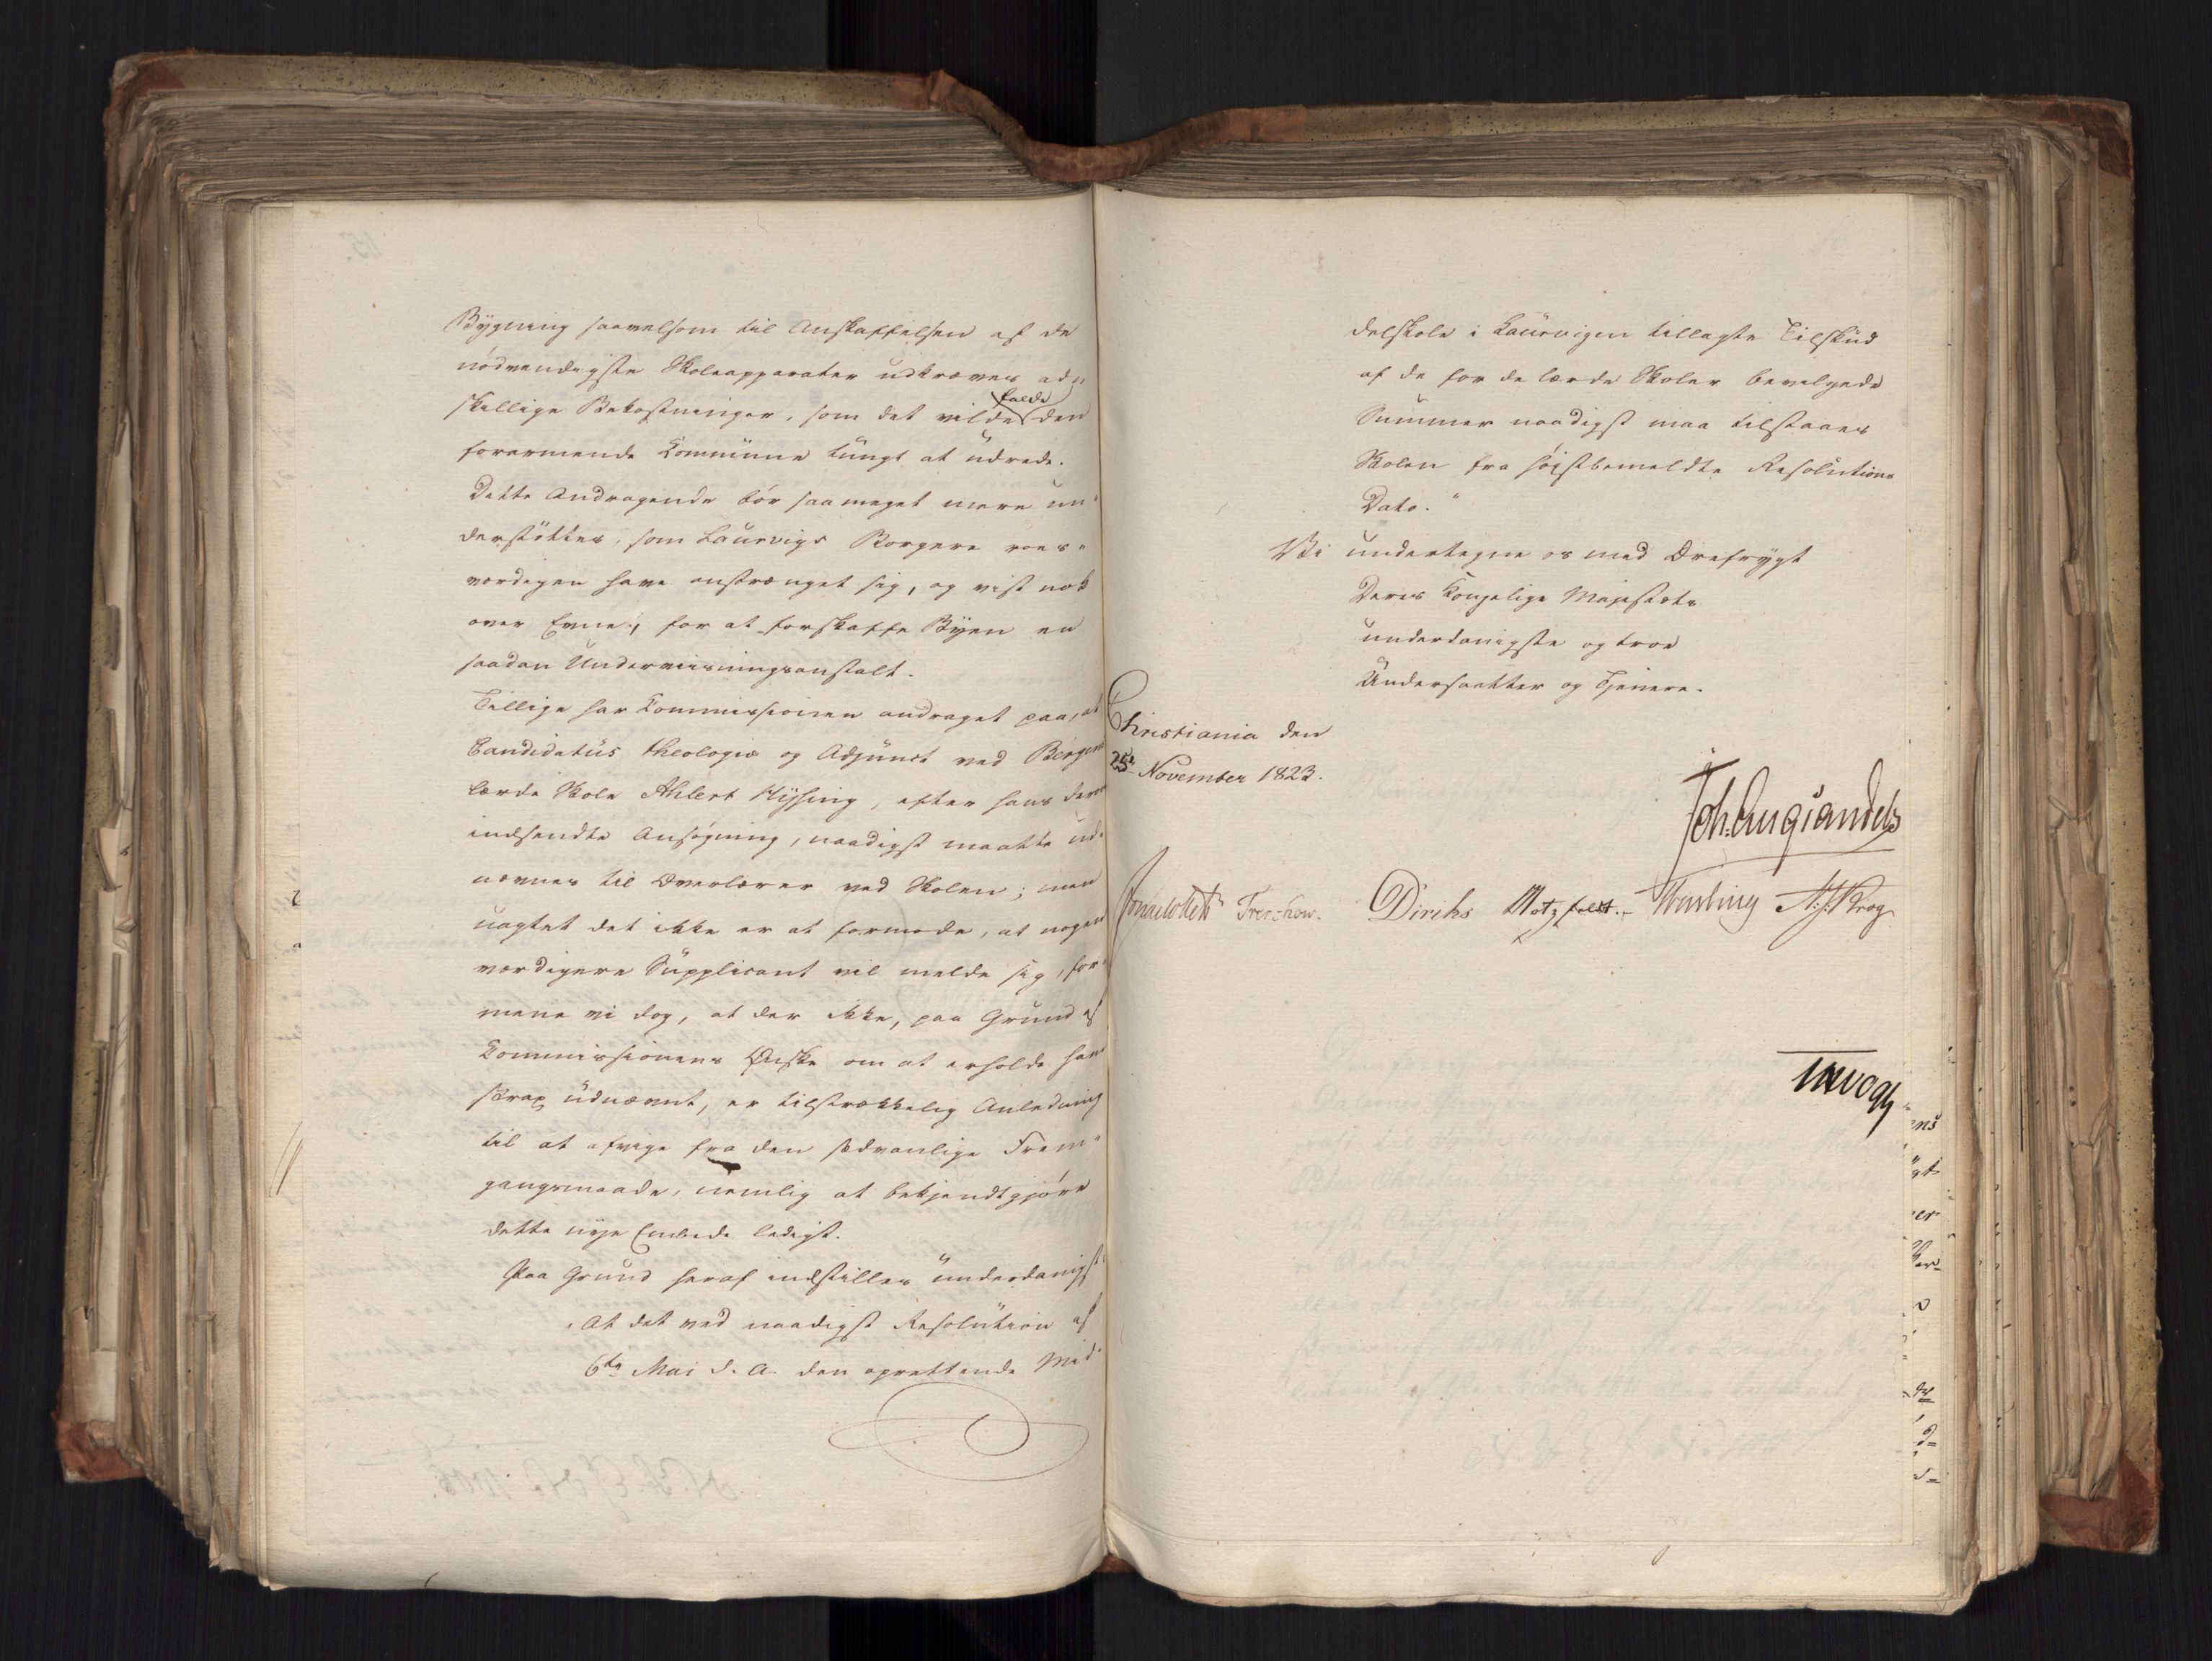 Bygning saavelsom til Anskaffelsen af de
nödvendigste Skoleapparater udkræves ad„
skillige Bekostninger, som det vilde falde den
forarmende Kommune tungt at udrede.
Dette Andragende bör saa meget mere un„
derstöttes, som Laurvigs Borgere roes„
værdigen have anstrænget sig, og vist nok
over Evne, for at forskaffe Byen en
saadan Underviisningsanstalt.
Tillige har Kommissionen andraget paa, at
Candidatus theologiæ og Adjunct ved Bergens
lærde Skole Ahlert Hysing, efter hans derom
indsendte Ansögning, naadigst maatte ud„
nævnes til Overlærer ved Skolen; men
uagtet det ikke er at formode, at nogen
værdigere Supplicant vil melde sig, for„
mene vi dog, at der ikke, paa Grund af
Kommissionens Önske om at erholde ham
strax udnævnt, er tilstrækkelig Anledning
til at afvige fra den sædvanlige Frem„
gangsmaade, nemlig at bekjendtgjöre
dette nye Embede ledigt.
Paa Grund heraf indstilles underdanigst:
„At det ved naadigst Resolution af
6te Mai d. A. den oprettende Mid„
delskole i Laurvigen tillagte Tilskud
af de for de lærde Skoler bevilgede
Summer naadigst maa tilstaaes
Skolen fra höistbemeldte Resolutions
Dato.“
Vi undertegne os med Ærefrygt
Deres Kongelige Majestæts
underdanigste og troe
Undersaatter og Tjenere.
Christiania den
25de November 1823.
Joh. Aug. Sandels
Sommerhielm Treschow. Diriks Motzfeldt. Fasting N. J. Krog
Vogt